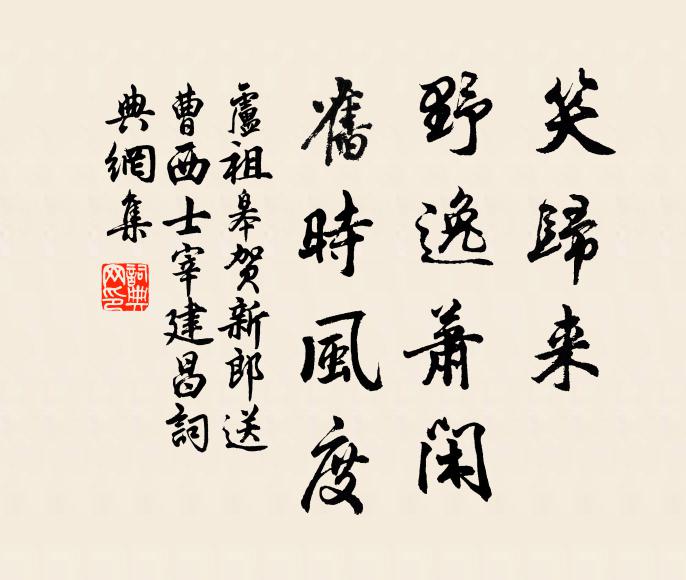 笑歸来
野逸蕭閑
舊時風度
盧祖皋賀新郎送
曹西士宰建昌詞
典網集
詞典網印